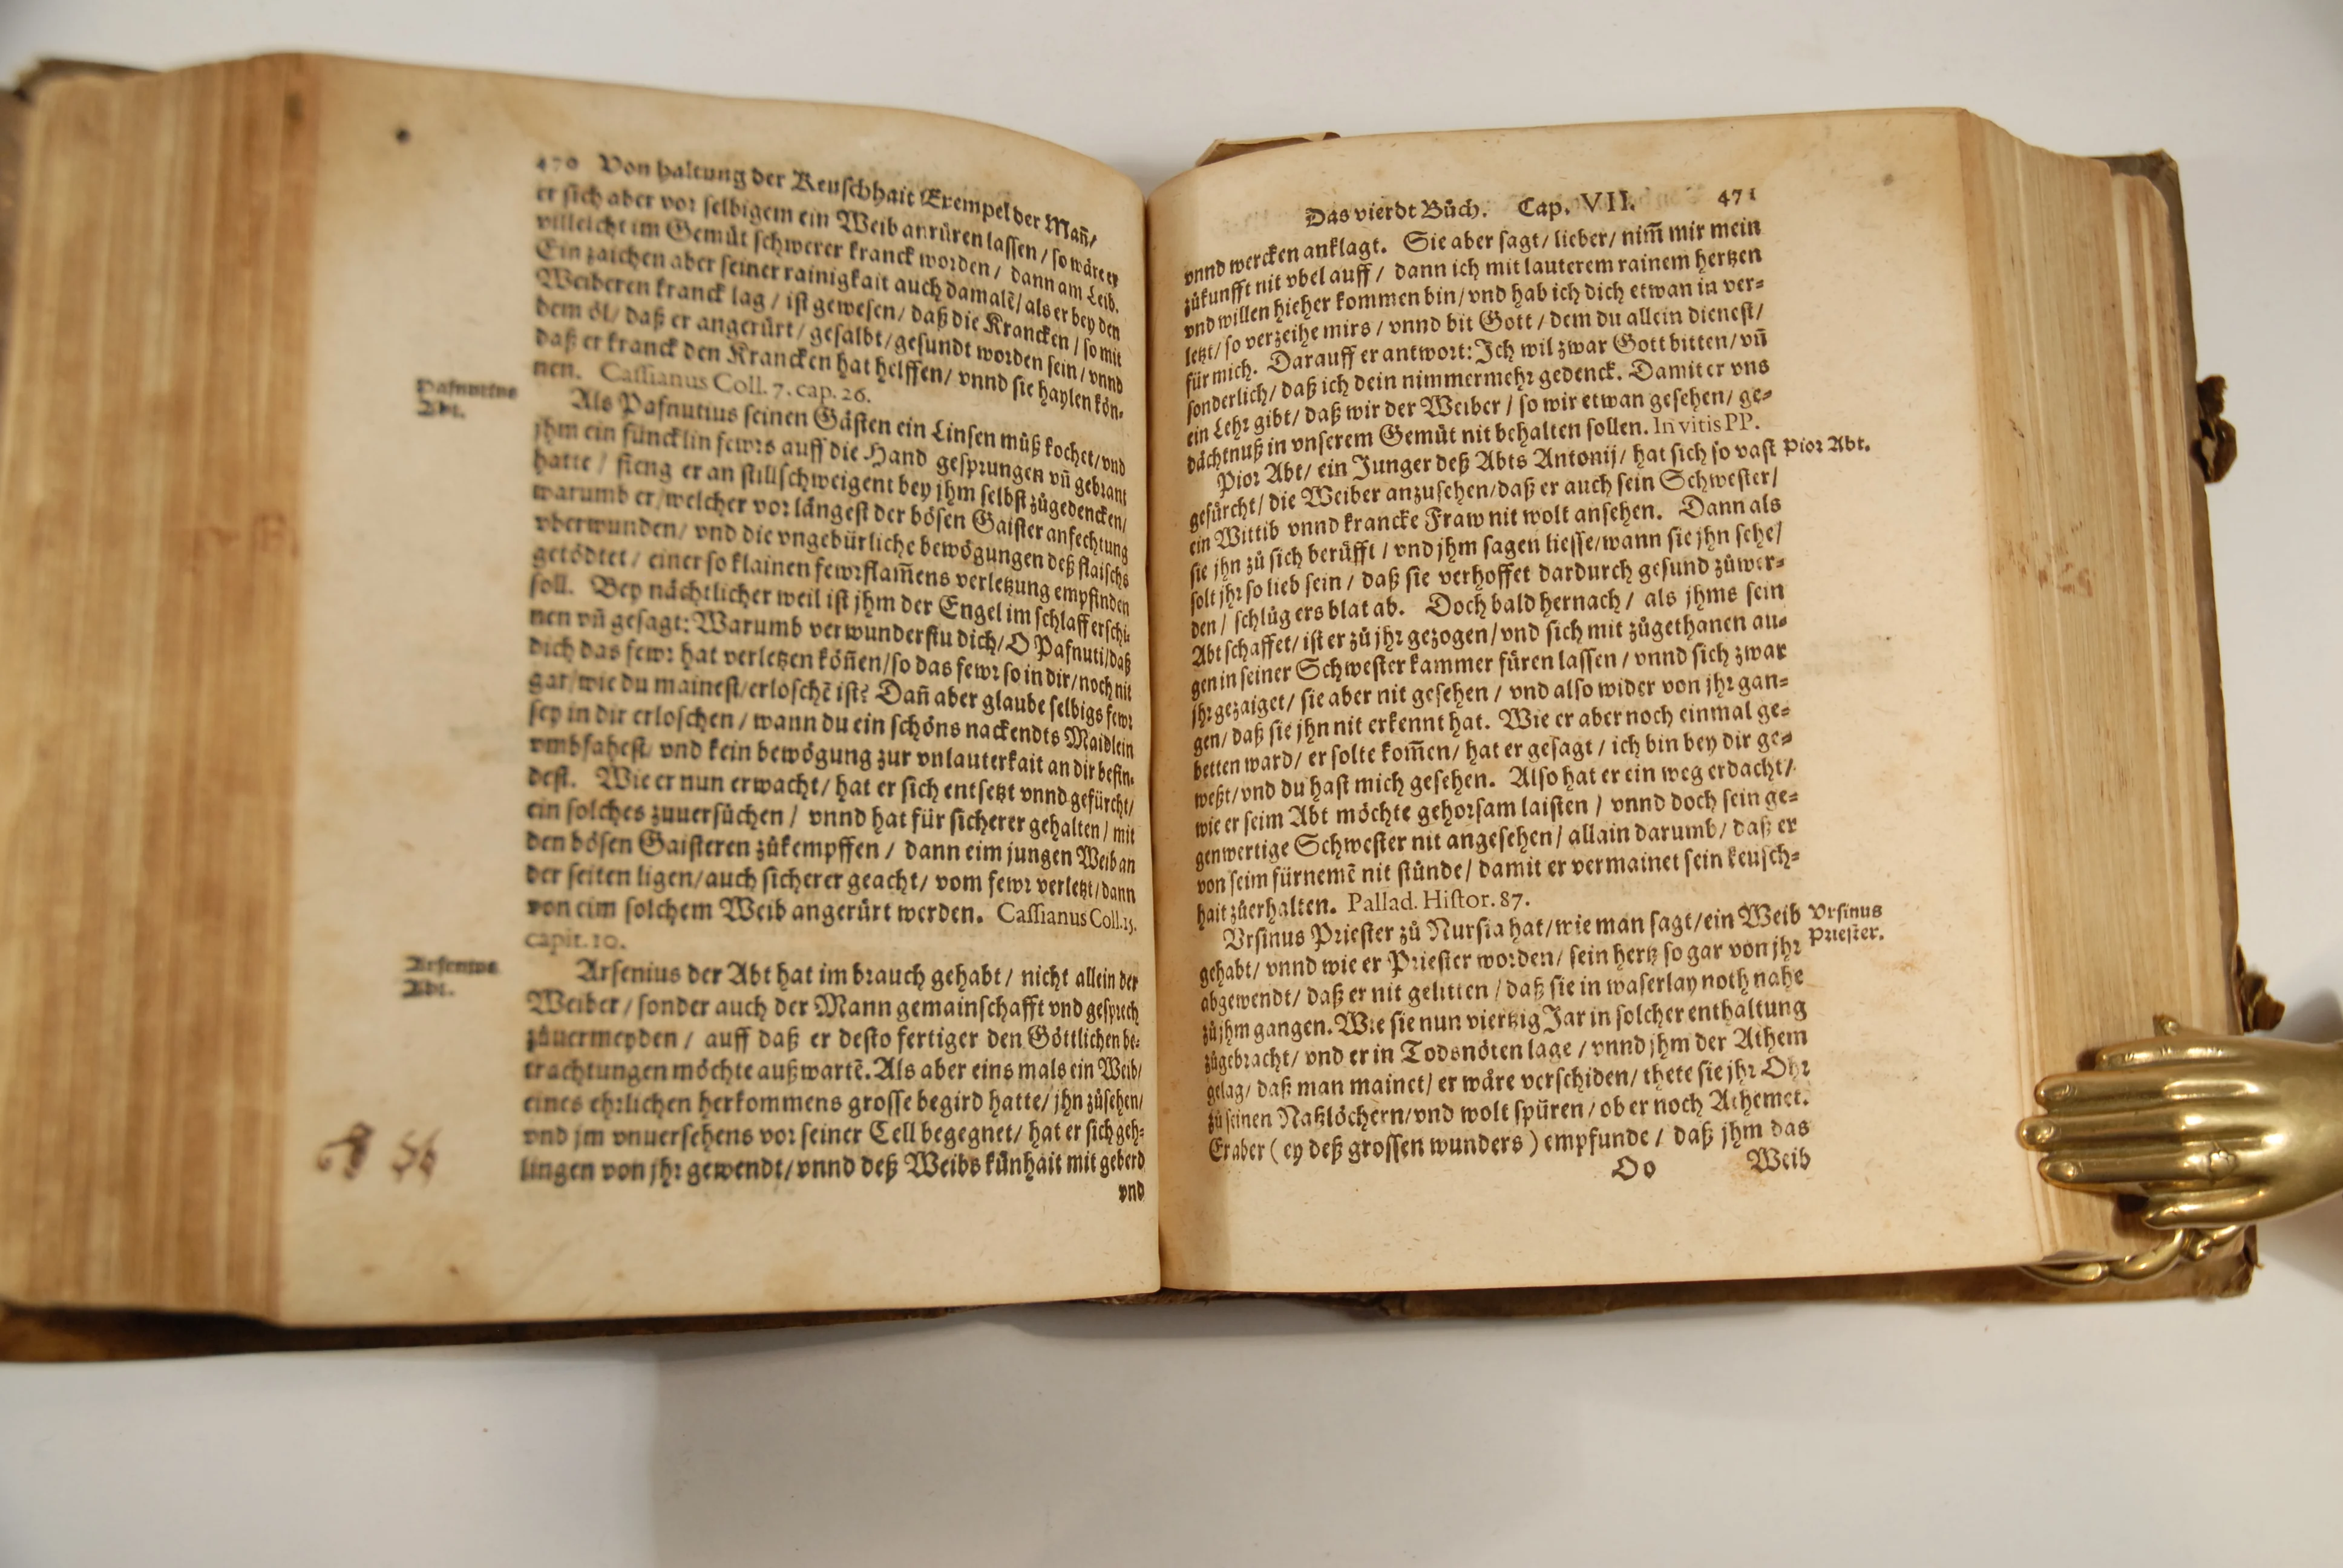 470 Von haltung der Keuschhait Exempel der Mañ/
er sich aber vor selbigem ein Weib anrüren lassen / so wäre er
villeicht im Gemüt schwerer kranck worden / dann am Leib.
Ein zaichen aber seiner rainigkait auch damalẽ / als er bey den
Weiberen kranck lag / ist gewesen / daß die Krancken / so mit
dem öl / daß er angerürt / gesalbt / gesundt worden sein / vnnd
daß er kranck den Krancken hat helffen / vnnd sie haylen kön-
nen. Cassianus Coll. 7. cap. 26.
Pafnutius
Abt.
Als Pafnutius seinen Gästen ein Linsen můß kochet / vnd
jhm ein füncklin fewrs auff die Hand gesprungen vñ gebrant
hatte / fieng er an stillschweigent bey jhm selbst zůgedencken /
warumb er / welcher vor längest der bösen Gaister anfechtung
vberwunden / vnd die vngebürliche bewögungen deß flaischs
getödtet / einer so klainen fewrflam̃ens verletzung empfinden
soll. Bey nächtlicher weil ist jhm der Engel im schlaff erschi-
nen vñ gesagt: Warumb verwunderstu dich / O Pafnuti / daß
dich das fewr hat verletzen köñen / so das fewr so in dir / noch nit
gar / wie du mainest / erloschẽ ist? Dañ aber glaube selbigs fewr
sey in dir erloschen / wann du ein schöns nackendts Maidlein
vmbfahest / vnd kein bewögung zur vnlauterkait an dir befin-
dest. Wie er nun erwacht / hat er sich entsetzt vnnd gefürcht /
ein solches zuuersůchen / vnnd hat für sicherer gehalten / mit
den bösen Gaisteren zůkempffen / dann eim jungen Weib an
der seiten ligen / auch sicherer geacht / vom fewr verletzt / dann
von eim solchem Weib angerürt werden. Cassianus Coll. 15.
capit. 10.
Arsenius
Abt.
Arsenius der Abt hat im brauch gehabt / nicht allein der
Weiber / sonder auch der Mann gemainschafft vnd gesprech
zůuermeyden / auff daß er desto fertiger den Göttlichen be-
trachtungen möchte außwartẽ. Als aber eins mals ein Weib /
eines ehrlichen herkommens grosse begird hatte / jhn zůsehen /
vnd jm vnuersehens vor seiner Cell begegnet / hat er sich geh-
lingen von jhr gewendt / vnnd deß Weibs künhait mit geberd
vnd
Das vierdt Bůch. Cap. VII. 471
vnnd wercken anklagt. Sie aber sagt / lieber / nim̃ mir mein
zůkunfft nit vbel auff / dann ich mit lauterem rainem hertzen
vnd willen hieher kommen bin / vnd hab ich dich etwan in ver-
letzt / so verzeihe mirs / vnnd bit Gott / dem du allein dienest /
für mich. Darauff er antwort: Ich wil zwar Gott bitten / vñ
sonderlich / daß ich dein nimmermehr gedenck. Damit er vns
ein Lehr gibt / daß wir der Weiber / so wir etwan gesehen / ge-
dächtnuß in vnserem Gemüt nit behalten sollen. In vitis PP.
Pior Abt / ein Junger deß Abts Antonij / hat sich so vast
Pior Abt.
gefürcht / die Weiber anzusehen / daß er auch sein Schwester /
ein Wittib vnnd krancke Fraw nit wolt ansehen. Dann als
sie jhn zů sich berůfft / vnd jhm sagen liesse / wann sie jhn sehe /
solt jhr so lieb sein / daß sie verhoffet dardurch gesund zůwer-
den / schlůg ers blat ab. Doch bald hernach / als jhms sein
Abt schaffet / ist er zů jhr gezogen / vnd sich mit zůgethanen au-
gen in seiner Schwester kammer füren lassen / vnnd sich zwar
jhr gezaiget / sie aber nit gesehen / vnd also wider von jhr gan-
gen / daß sie jhn nit erkennt hat. Wie er aber noch einmal ge-
betten ward / er solte kom̃en / hat er gesagt / ich bin bey dir ge-
weßt / vnd du hast mich gesehen. Also hat er ein weg erdacht /
wie er seim Abt möchte gehorsam laisten / vnnd doch sein ge-
genwertige Schwester nit angesehen / allain darumb / daß er
von seim fürnemẽ nit stünde / damit er vermainet sein keusch-
hait zůerhalten. Pallad. Histor. 87.
Vrsinus Priester zů Nursia hat / wie man sagt / ein Weib
Vrsinus
Priester.
gehabt / vnnd wie er Priester worden / sein hertz so gar von jhr
abgewendt / daß er nit gelitten / daß sie in waserlay noth nahe
zů jhm gangen. Wie sie nun viertzig Jar in solcher enthaltung
zůgebracht / vnd er in Todsnöten lage / vnnd jhm der Athem
gelag / daß man mainet / er wäre verschiden / thete sie jhr Ohr
zů seinen Naßlöchern / vnd wolt spüren / ob er noch Athemet.
Er aber (ey deß grossen wunders) empfunde / daß jhm das
Oo Weib